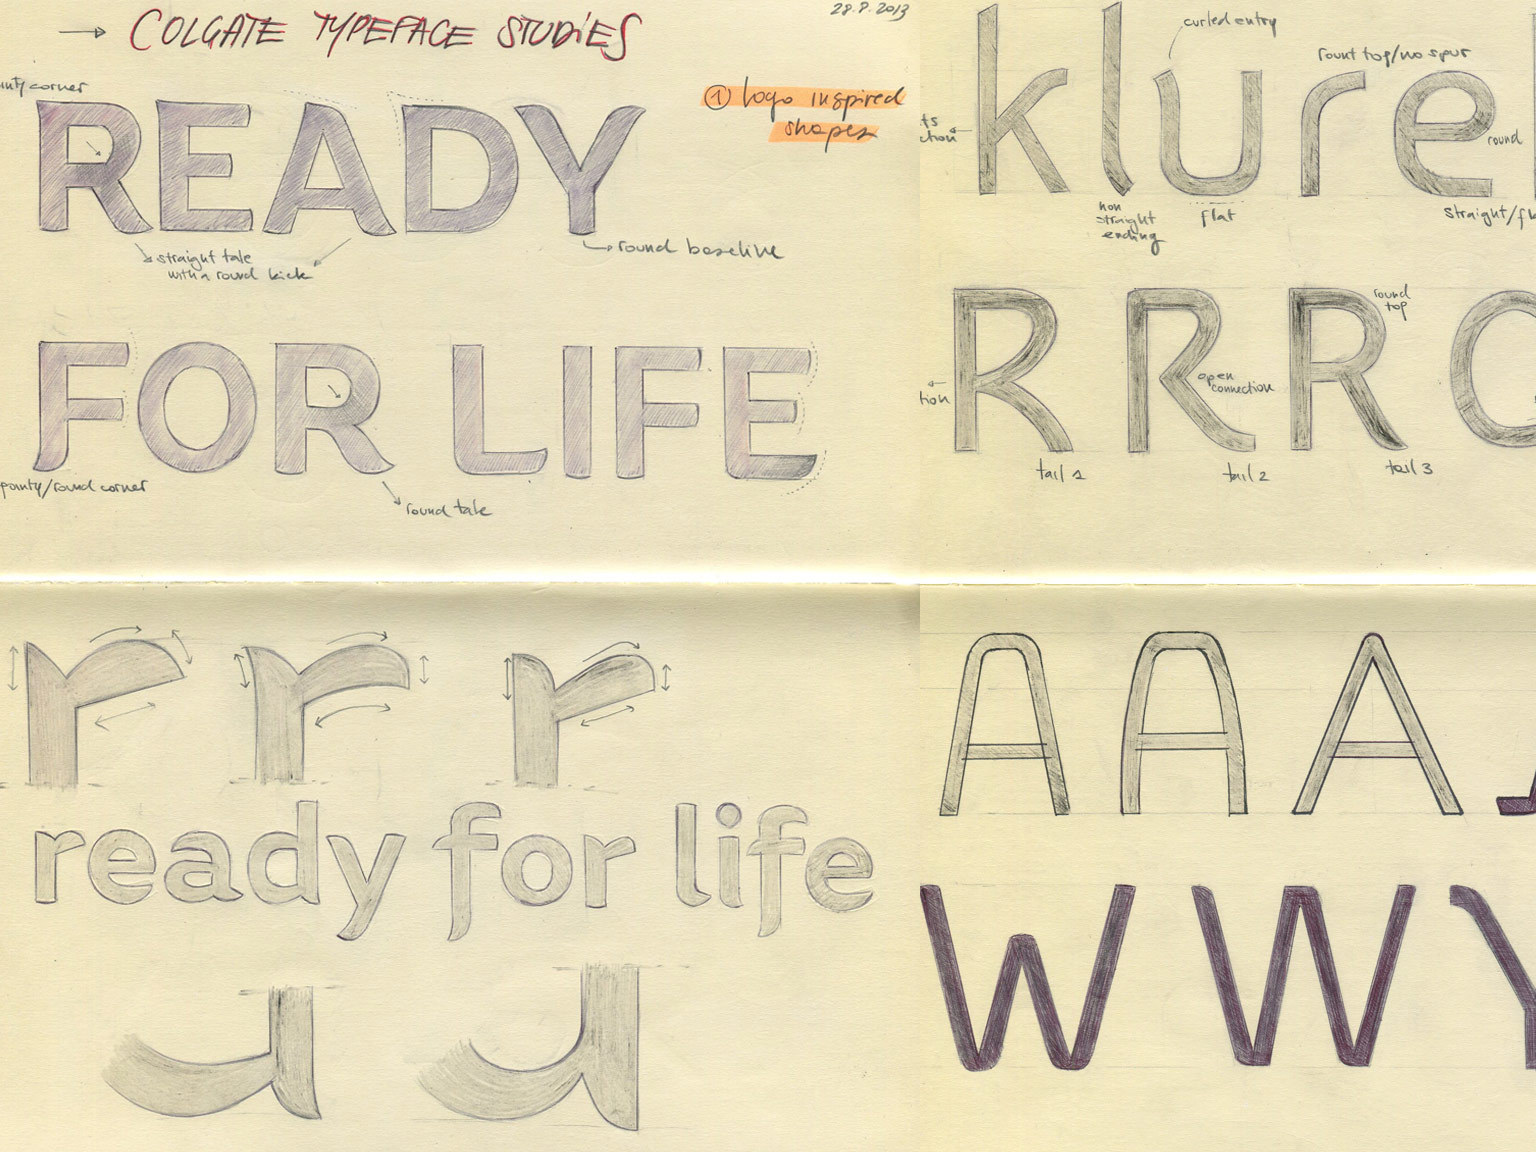 → COLGATE TYPEFACE STUDiES
28.8.2013
corner
READY
① logo inspired
shapes
straight tale
with a round kick
round baseline
FOR LIFE
pointy/round corner
round tale
curled entry
round top/no spur
klure
round
non
straight
ending
flat
straight/
RRR
round
top
open
connection
tail 1
tail 2
tail 3
r r r
ready for life
AAA
WWY